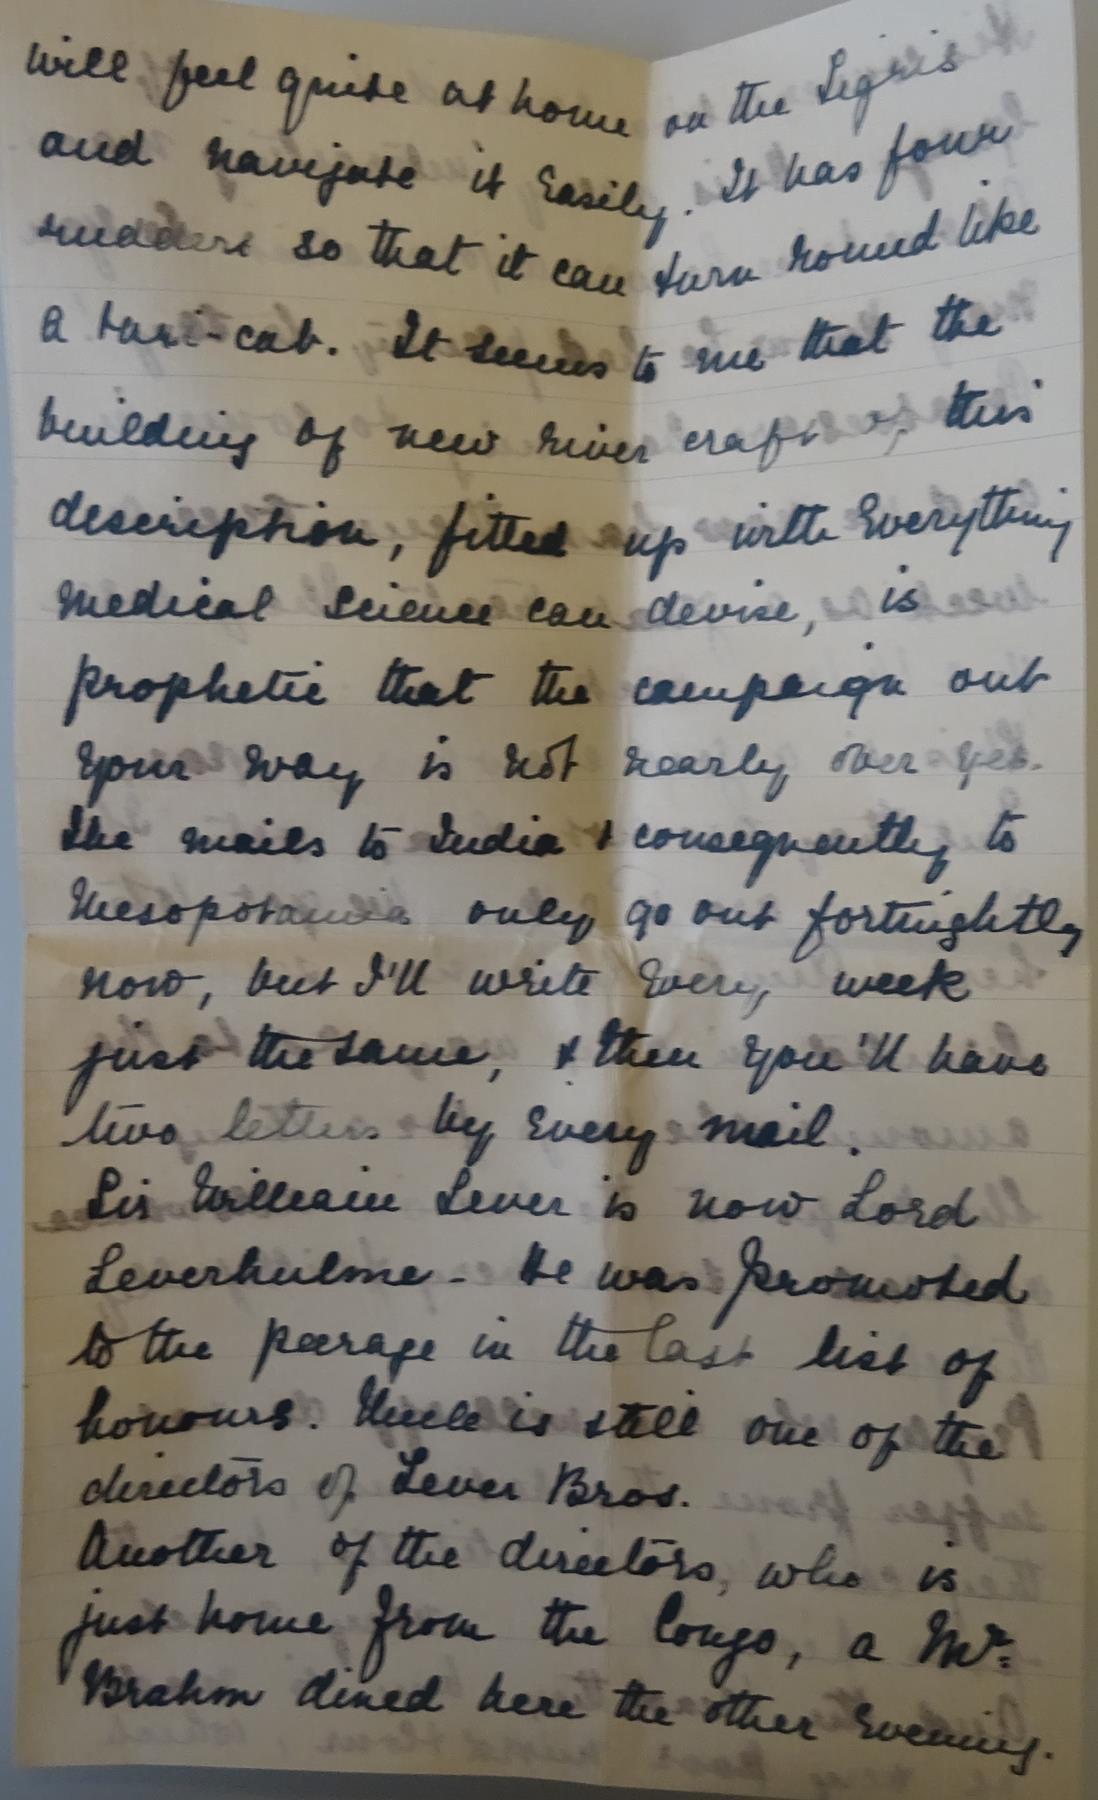 will feel quite at home on the Tigris
and navigate it Easily. It has four
rudders so that it can turn round like
a taxi-cab. It seems to me that the
building of new river craft of this
description, fitted up with Everything
medical science can devise, is
prophetic that the campaign out
your way is not nearly over yet.
The mails to India & consequently to
Mesopotamia only go out fortnightly
now, but I'll write Every week
just the same, & then you'll have
two letters by Every mail.
Sir William Lever is now Lord
Leverhulme - He was promoted
to the peerage in the last list of
honours. Uncle is still one of the
directors of Lever Bros.
Another of the directors, who is
just home from the Congo, a Mr.
Brahm dined here the other Evening.